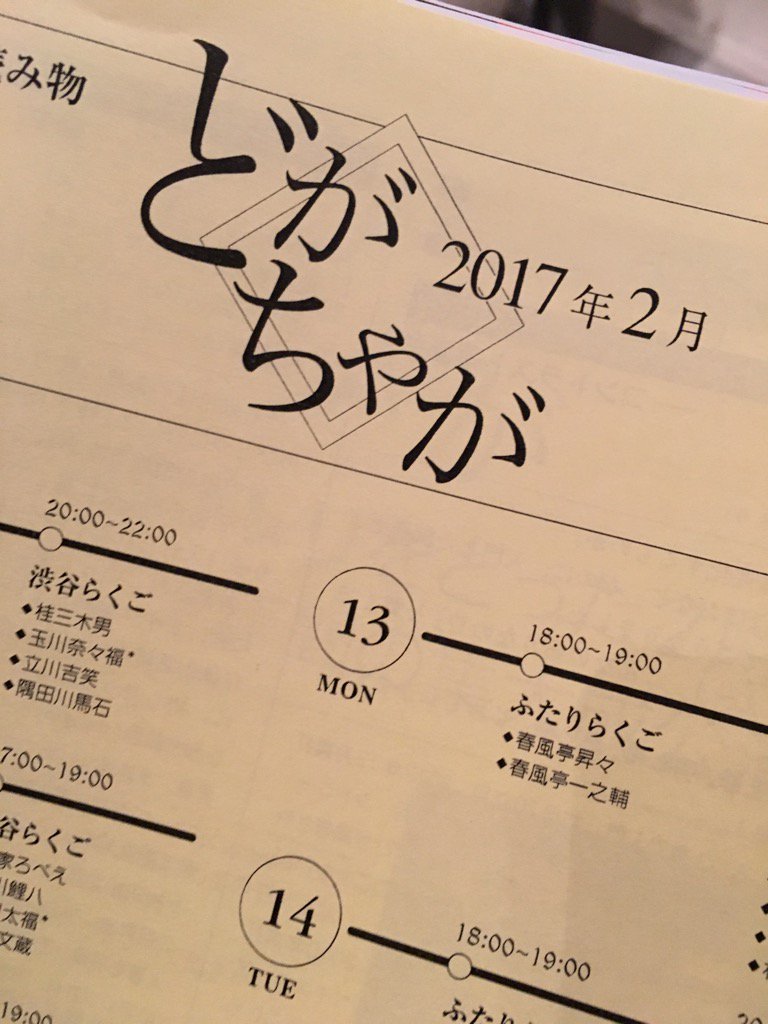 み物
どがちゃが
2017年2月
20:00~22:00
渋谷らくご
◆桂三木男
◆玉川奈々福*
◆立川吉笑
◆隅田川馬石
13
MON
18:00~19:00
ふたりらくご
◆春風亭昇々
◆春風亭一之輔
7:00~19:00
谷らくご
家ろべえ
川鯉八
太福*
文蔵
14
TUE
18:00~19:00
ふたり
19:00